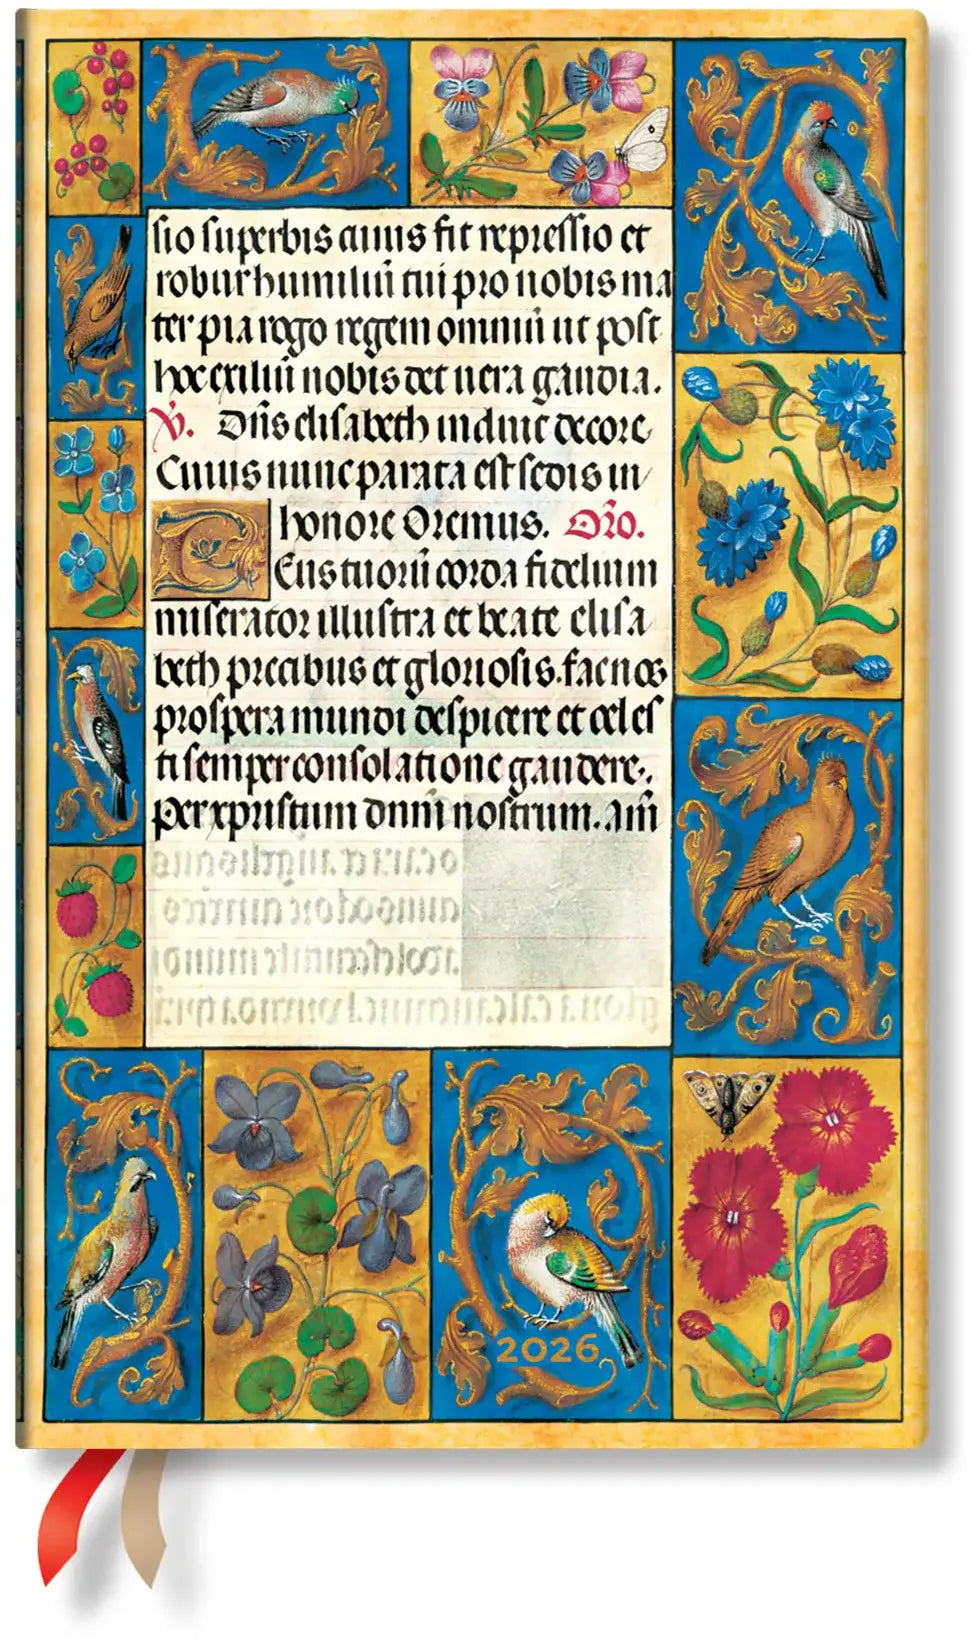 sio superbis cuius fit repressio et
robur humiliū tui pro nobis ma
ter pia rogo regem omniū ut post
hoc exiliū nobis det uera gaudia.
V. Dn̄s elisabeth induit decore
Cuius nunc parata est sedis in
honore Oremus. Or̄o.
Deus tuorū corda fidelium
miserator illustra et beate elisa
beth precibus et gloriosis. fac nos
prospera mundi despicere et celes
ti semper consolatione gaudere.
Per xpristum dnm̄ nostrum. Am̄
2026